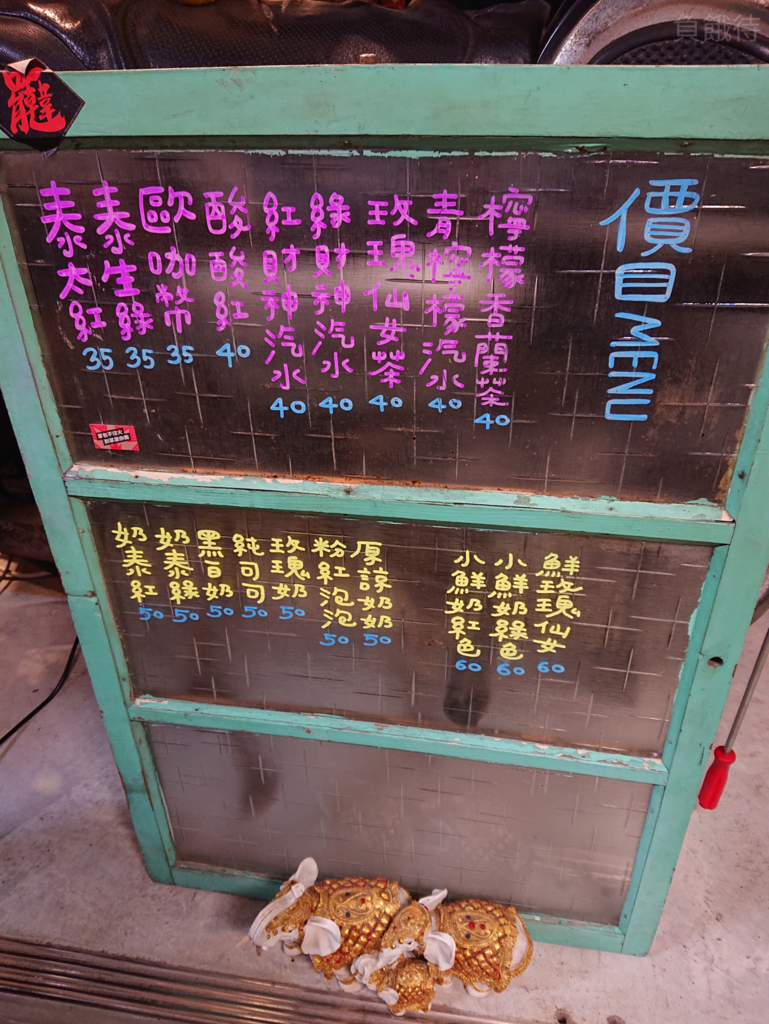 價目MENU
檸檬香蘭茶 40
青檸檬汽水 40
玫瑰仙女茶 40
綠財神汽水 40
紅財神汽水 40
酸酸紅 40
歐咖幣 35
泰生綠 35
泰太紅 35
鮮玫瑰仙女 60
小鮮奶綠色 60
小鮮奶紅色 60
厚諒奶奶 50
粉紅泡泡 50
玫瑰奶 50
純可可 50
黑白奶 50
奶泰綠 50
奶泰紅 50